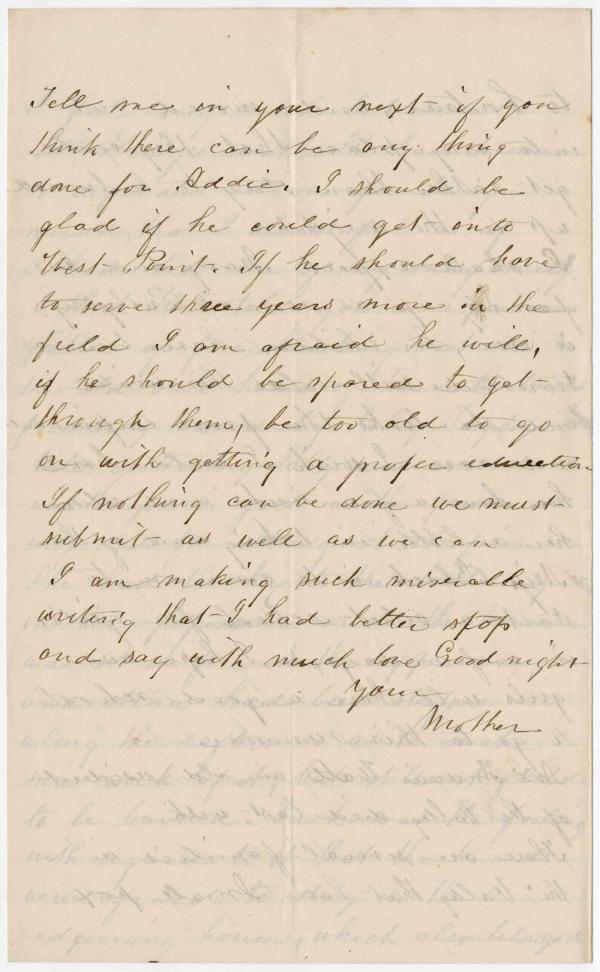 Tell me in your next if you
think there can be any thing
done for Addie. I should be
glad if he could get into
West Point. If he should have
to serve three years more in the
field I am afraid he will,
if he should be spared to get
through them, be too old to go
on with getting a proper education
If nothing can be done we must
submit as well as we can
I am making such miserable
writing that I had better stop
and say with much love Good night
Your
Mother